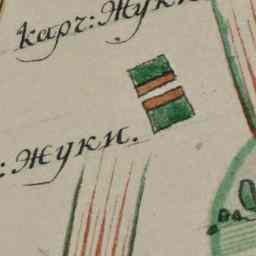 карч: Жуки
: Жуки.